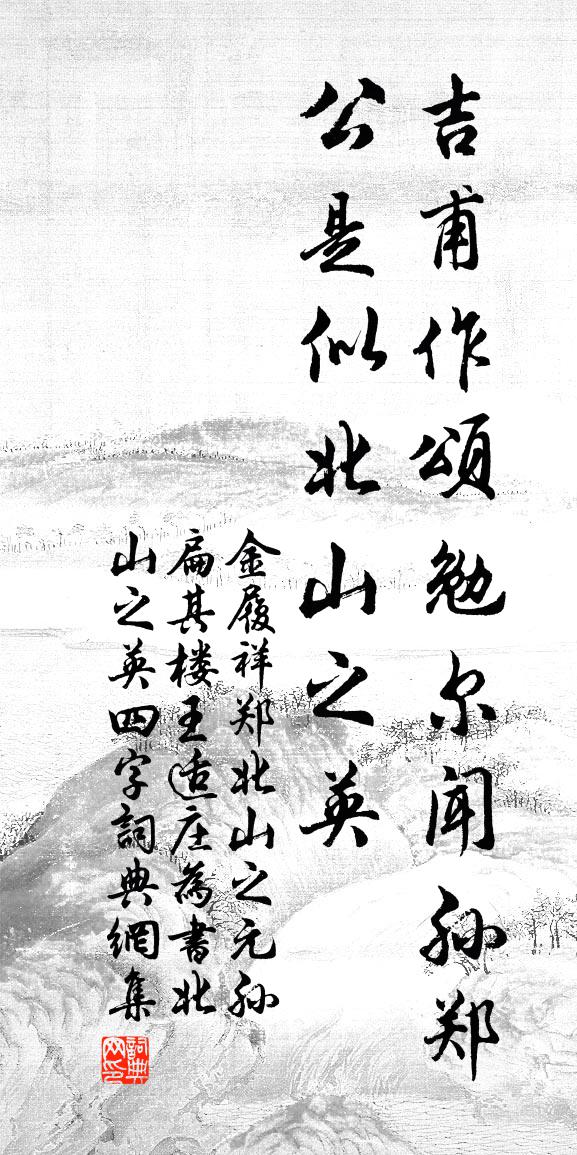 吉甫作頌勉尔聞孙郑
公是似北山之英
金履祥郑北山之元孙
扁其楼王适庄為書北
山之英四字詞典網集
詞典
网印